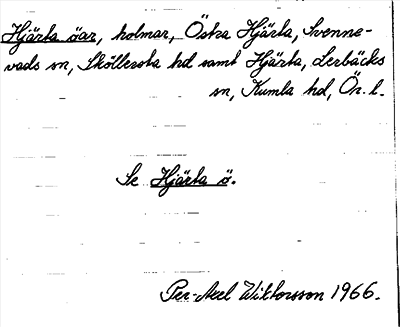 Hjärta öar, holmar, Östra Hjärta, Svenne-
vads sn, Sköllersta hd samt Hjärta, Lerbäcks
sn, Kumla hd, Ör. l.
Se Hjärta ö.
Per-Axel Wiktorsson 1966.